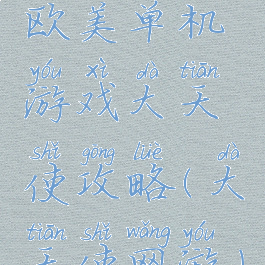 欧美单机
yóu xì dà tiān
游戏大天
shǐ gōng lüè dà
使攻略(大
tiān shǐ wǎng yóu
天使网游)